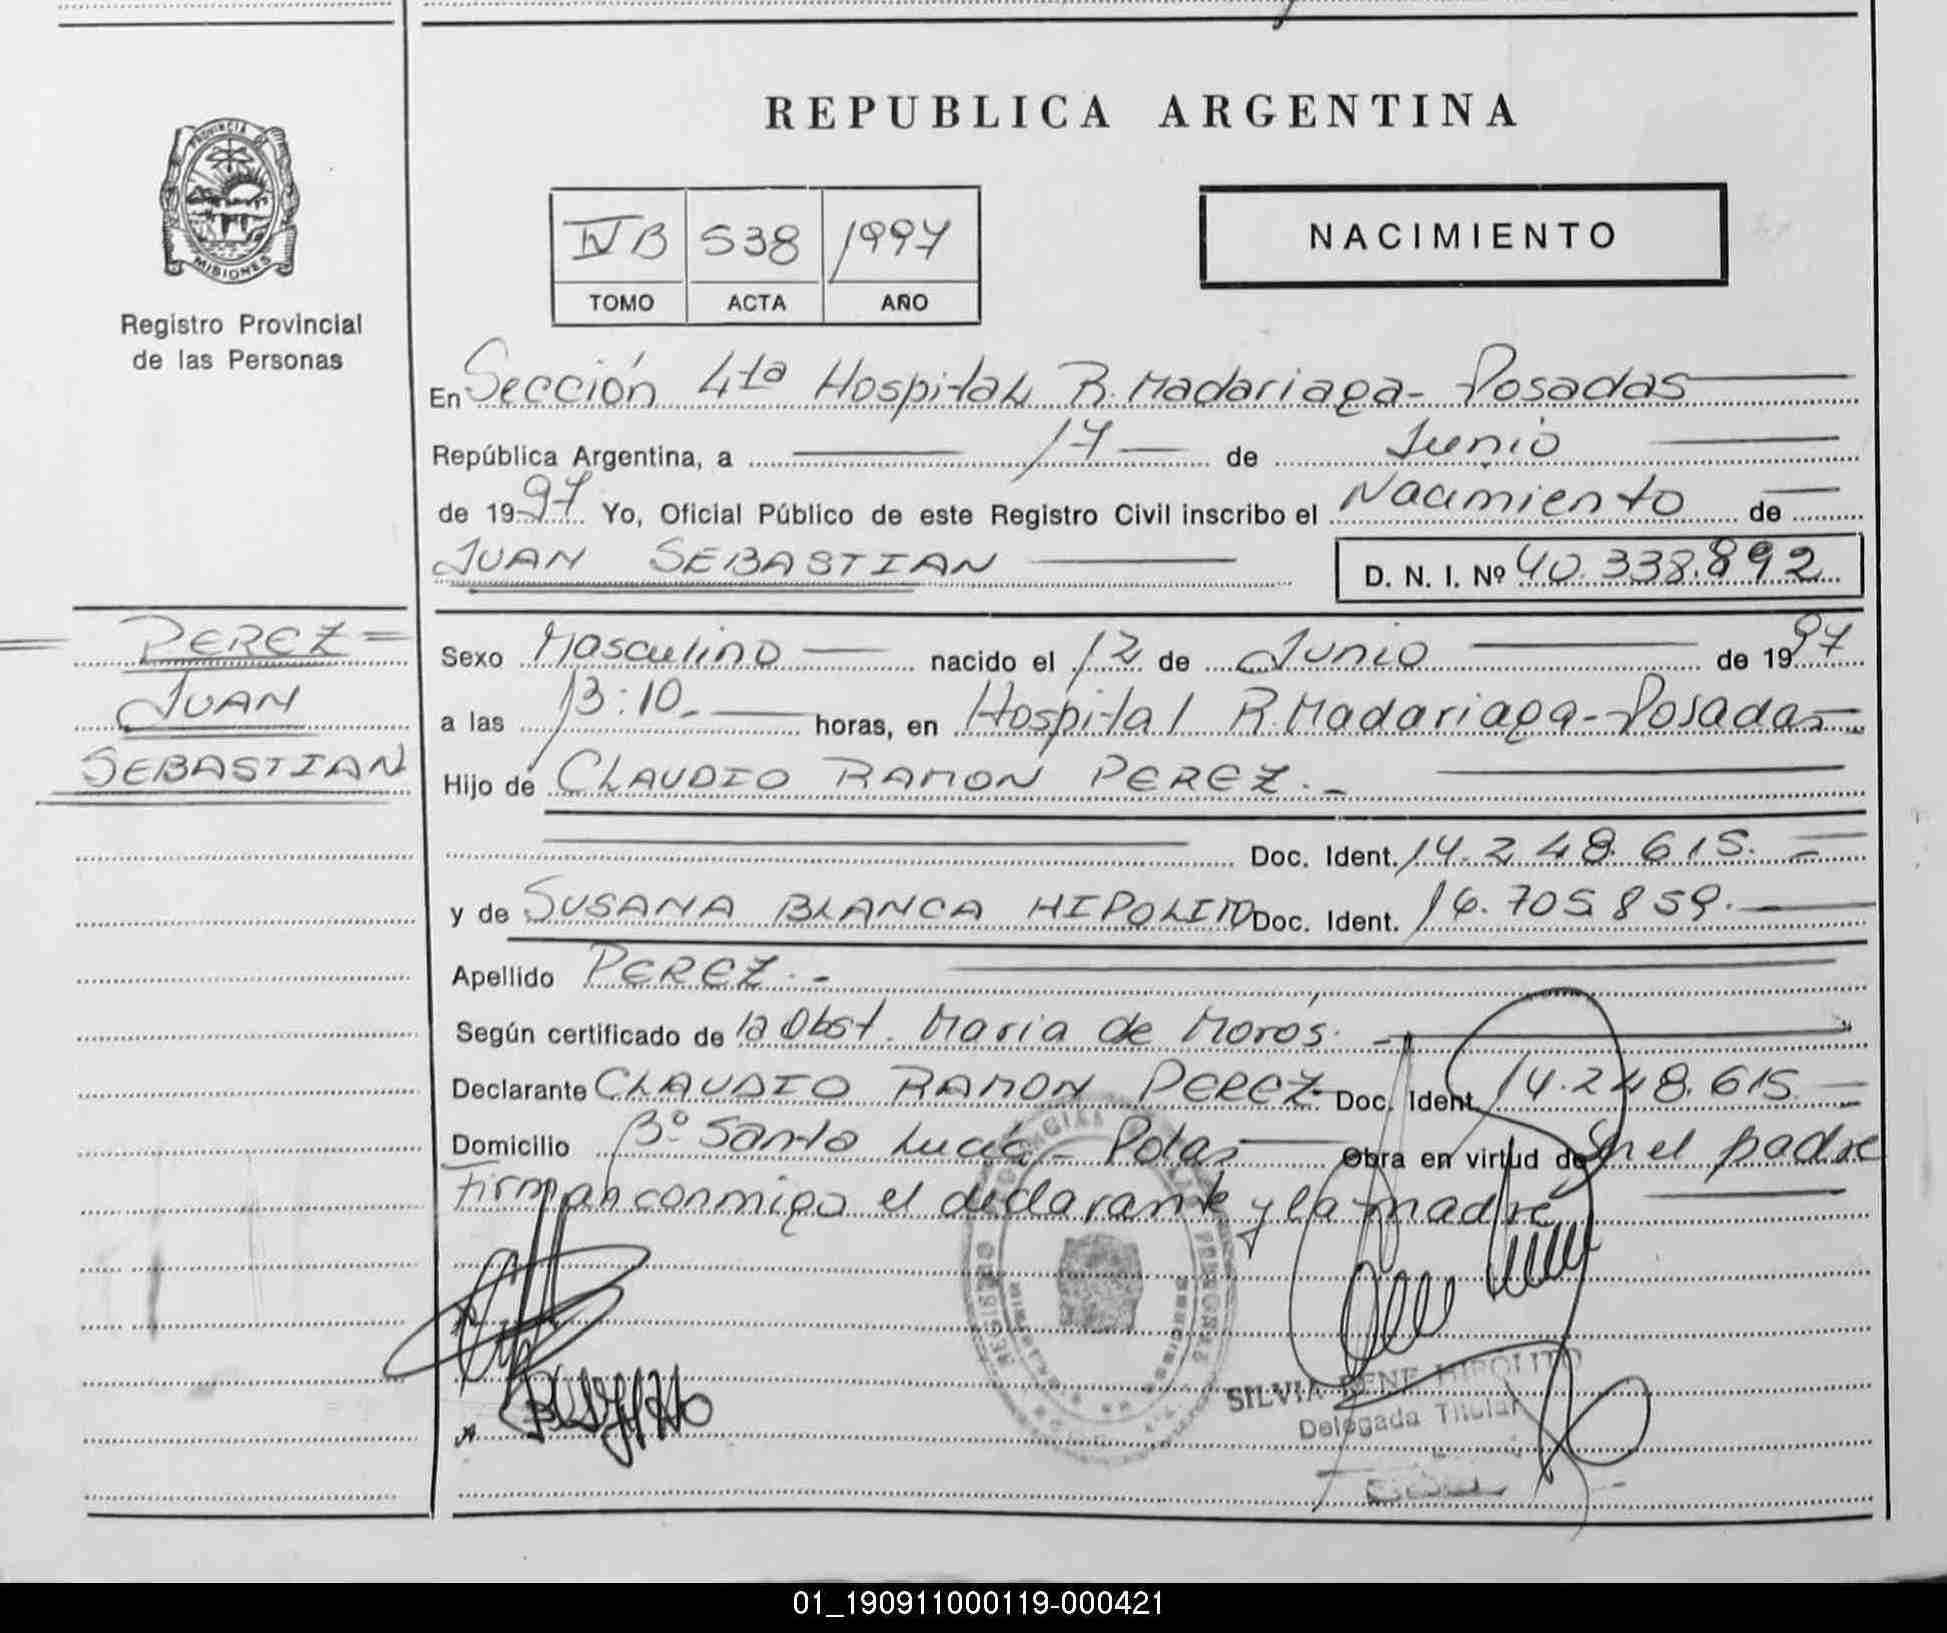 REPUBLICA ARGENTINA
PROVINCIA DE
MISIONES
Registro Provincial
de las Personas
IVB 538 1997
TOMO ACTA AÑO
NACIMIENTO
En Sección 4ta Hospital R. Madariaga - Posadas
República Argentina, a 17 de Junio
de 1997 Yo, Oficial Público de este Registro Civil inscribo el Nacimiento de
JUAN SEBASTIAN D. N. I. Nº 40.338.892
PEREZ
JUAN
SEBASTIAN
Sexo Masculino nacido el 12 de Junio de 1997
a las 13:10 horas, en Hospital R. Madariaga - Posadas
Hijo de CLAUDIO RAMON PEREZ.-
Doc. Ident. 14.248.615.
y de SUSANA BLANCA HIPOLITO Doc. Ident. 16.705.859.
Apellido PEREZ.-
Según certificado de la Obst. Maria de Moros.
Declarante CLAUDIO RAMON PEREZ Doc. Ident. 14.248.615
Domicilio Bº Santa Lucía - Pdas Obra en virtud de Sn el padre
Firman conmigo el declarante y la madre
SILVIA RENE HIPOLITO
Delegada Titular
01_190911000119-000421